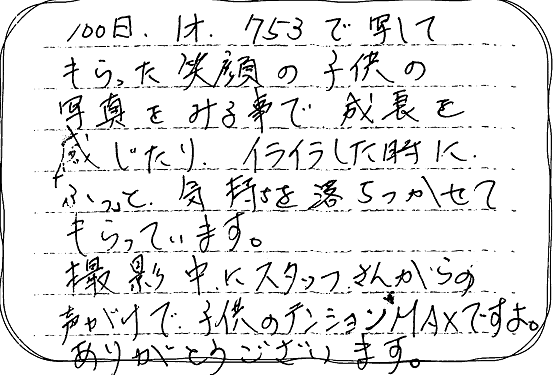 100日、1才、753で写して
もらった笑顔の子供の
写真をみる事で成長を
感じたり、イライラした時に
ふっと、気持ちを落ちつかせて
もらっています。
撮影中にスタッフさんからの
声がけで子供のテンションMAXですよ。
ありがとうございます。